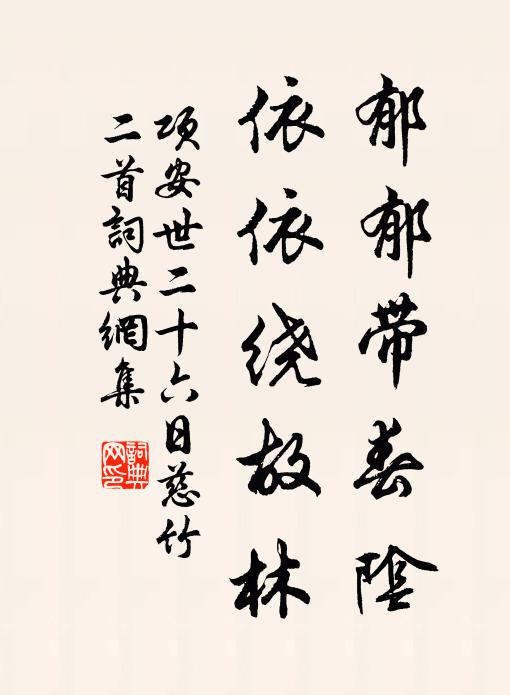 郁郁带春陰
依依绕故林
项安世二十六日慈竹
二首詞典網集
詞典
网印